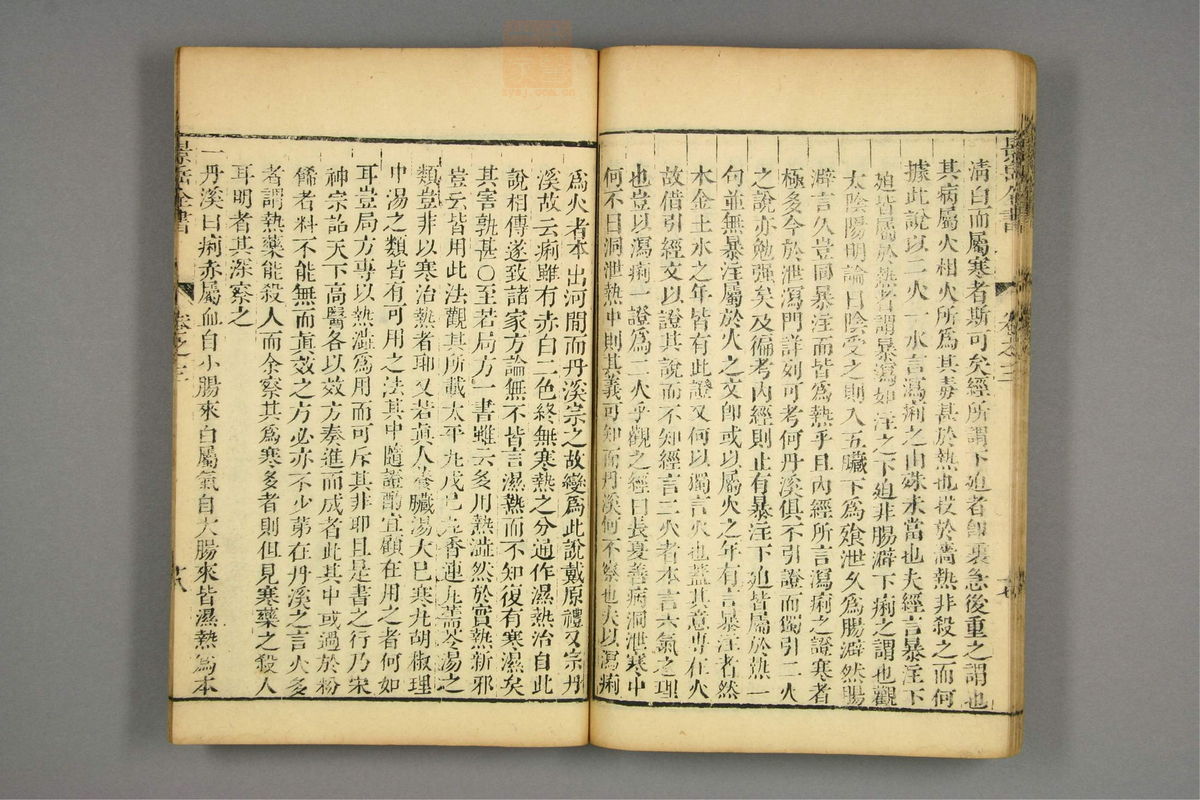 清白而屬寒者斯可矣經所謂下迫者卽裏急後重之謂也
其病屬火相火所爲其毒甚於熱也投於澇熱非殺之而何
據此說以二火一水言瀉痢之由殊未當也夫經言暴注下
迫皆屬於熱者謂暴瀉如注之下迫非腸澼下痢之謂也觀
太陰陽明論曰陰受之則入五臟下爲飱泄久爲腸澼然腸
澼言久豈同暴注而皆爲熱乎且內經所言瀉痢之證寒者
極多今於泄瀉門詳列可考何丹溪俱不引證而獨引二火
之說亦勉强矣及徧考內經則止有暴注下迫皆屬於熱一
句並無暴注屬於火之文卽或以屬火之年有言暴注者然
木金土水之年皆有此證又何以獨言火也蓋其意專在火
故借引經文以證其說而不知經言二火者本言六氣之理
也豈以瀉痢一證爲二火乎觀之經曰長夏善病洞泄寒中
何不曰洞泄熱中則其義可知而丹溪何不察也夫以瀉痢
爲火者本出河間而丹溪宗之故變爲此說戴原禮又宗丹
溪故云痢雖有赤白二色終無寒熱之分通作濕熱治自此
說相傳遂致諸家方論無不皆言濕熱而不知復有寒濕矣
其害孰甚〇至若局方一書雖云多用熱澁然於實熱新邪
豈云皆用此法觀其所載太平丸戊己丸香連丸薷苓湯之
類豈非以寒治熱者耶又若眞人養臟湯大巳寒丸胡椒理
中湯之類皆有可用之法其中隨證酌宜顧在用之者何如
耳豈局方專以熱澁爲用而可斥其非耶且是書之行乃宋
神宗詔天下高醫各以效方奏進而成者此其中或過於粉
餙者料不能無而眞效之方必亦不少第在丹溪之言火多
者謂熱藥能殺人而余察其爲寒多者則但見寒藥之殺人
耳明者其深察之
一丹溪曰痢赤屬血自小腸來白屬氣自大腸來皆濕熱爲本
景岳全書
卷之三
十八